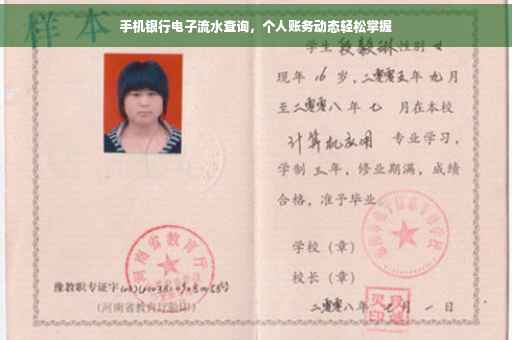 手机银行电子流水查询，个人账务动态轻松掌握
样本
学生段毅琳性别女
现年16岁，二零零五年九月
至二零零八年七月在本校
计算机应用 专业学习，
学制三年，修业期满，成绩
合格，准予毕业
学校（章）
校长（章）
二零零八年 月一日
河南省教育厅
豫教职专证字
（河南省教育厅验印）